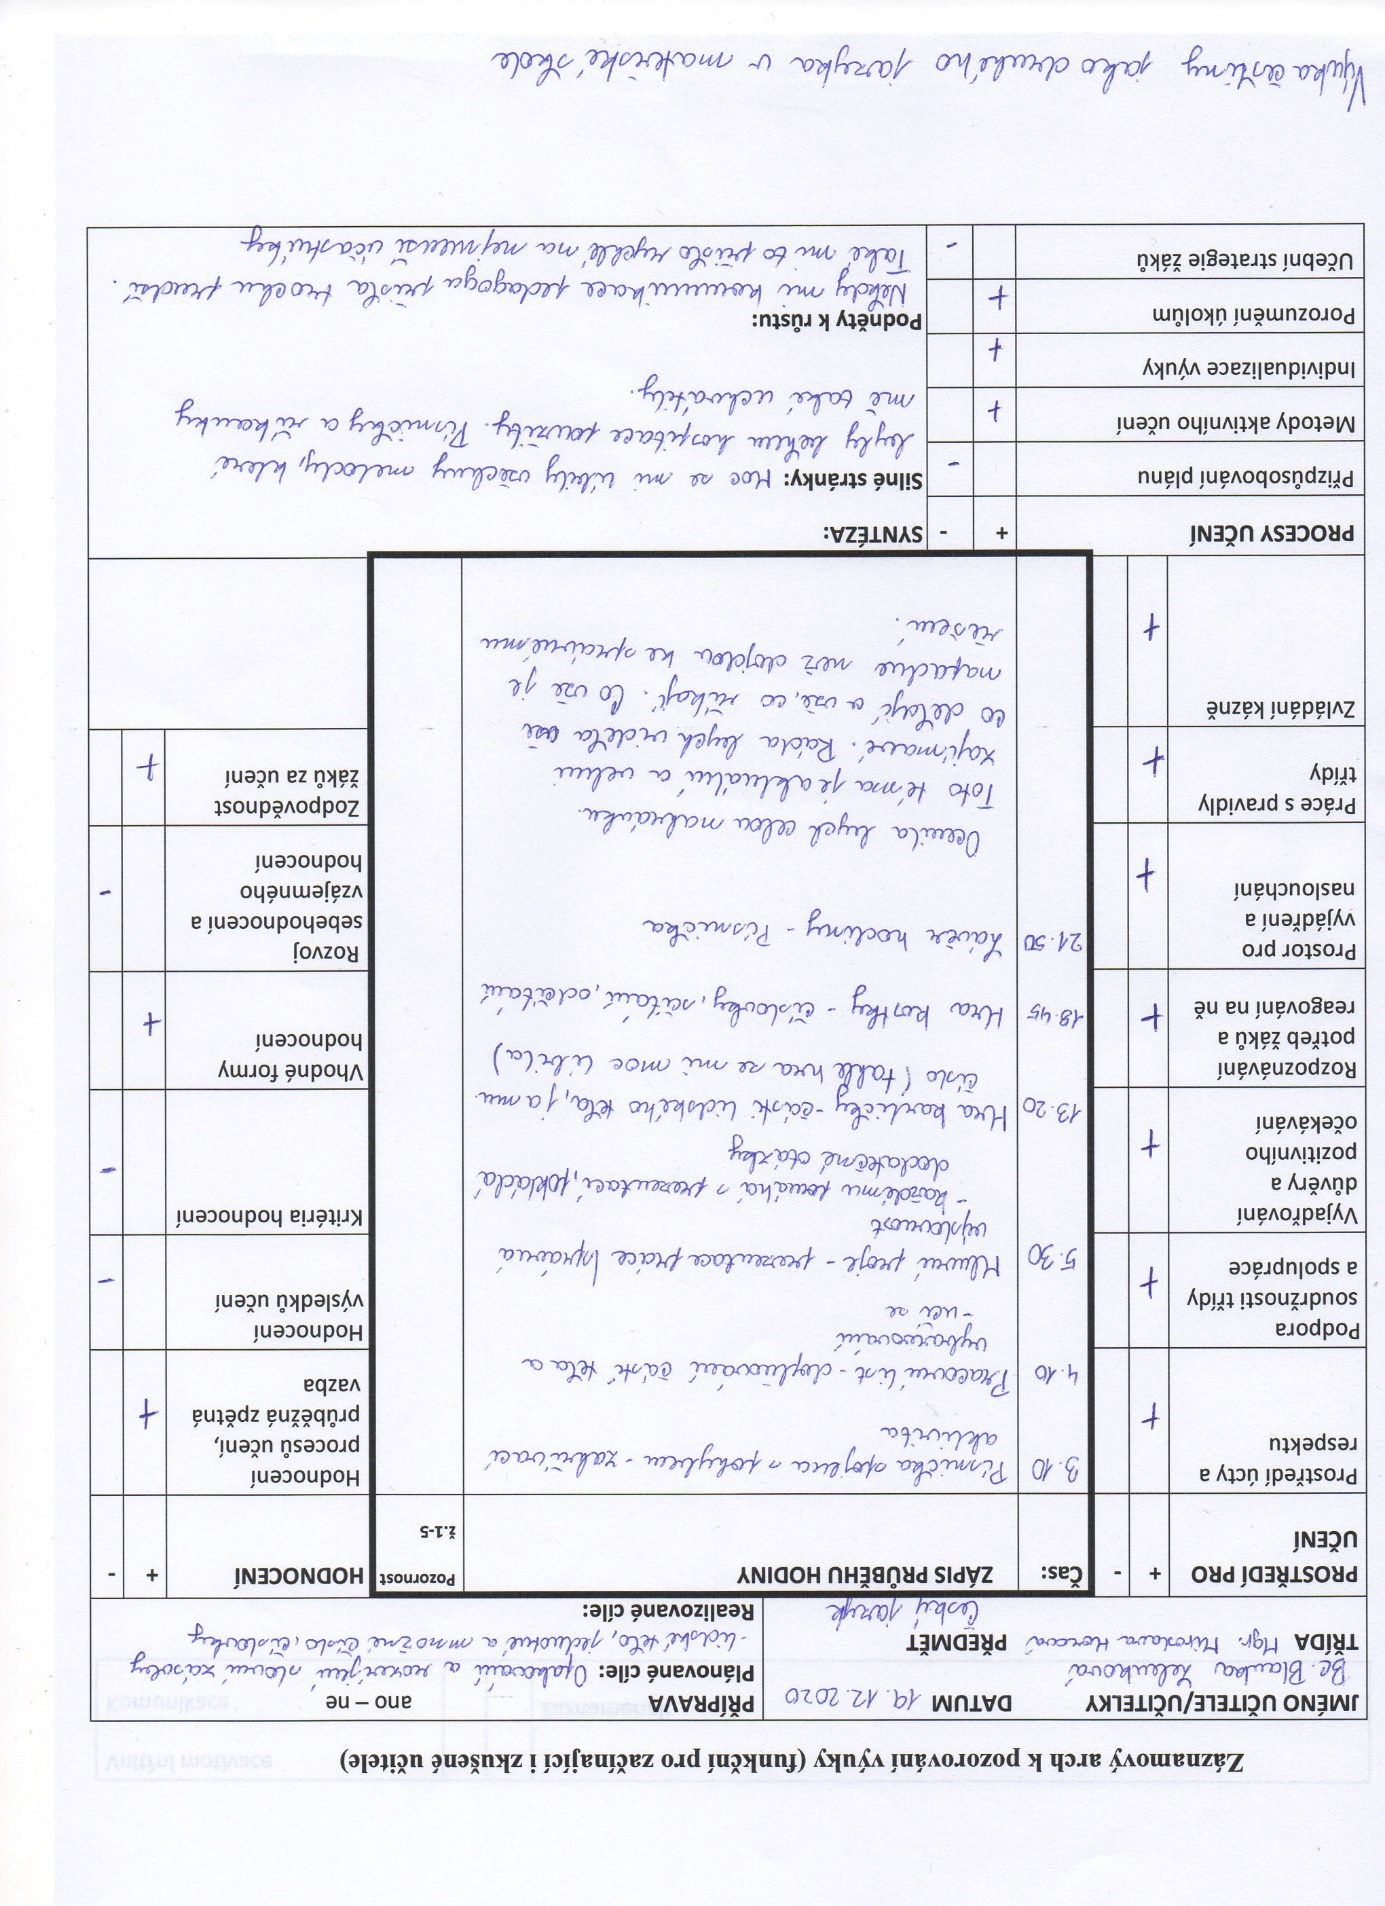 Záznamový arch k pozorování výuky (funkční pro začínající i zkušené učitele)
JMÉNO UČITELE/UČITELKY
Bc. Blanka Zelenková
TŘÍDA Mgr. Miroslava Horová
DATUM 19.12.2020
PŘEDMĚT
Český jazyk
PŘÍPRAVA ano – ne
Plánované cíle: Opakování a rozvíjení slovní zásoby
- lidské tělo, jednotné a množné číslo, číslovky
Realizované cíle:
PROSTŘEDÍ PRO UČENÍ + -
Prostředí úcty a respektu +
Podpora soudržnosti třídy a spolupráce +
Vyjadřování důvěry a pozitivního očekávání +
Rozpoznávání potřeb žáků a reagování na ně +
Prostor pro vyjádření a naslouchání +
Práce s pravidly třídy +
Zvládání kázně +
Čas: ZÁPIS PRŮBĚHU HODINY
Pozornost ž.1-5
3.10 Písnička spojena s pohybem - zahřívací
aktivita
4.10 Pracovní list - doplňování částí těla a
vybarvování
- učí se
5.30 Mluvní projev - prezentace práce /správná
výslovnost
- každému pomáhá s prezentací, pokládá
dodatečné otázky
13.20 Hra kartičky - části lidského těla, j a mn.
číslo (tahle hra se mi moc líbila)
18.45 Hra kostky - číslovky, sčítání, odčítání
21.50 Závěr hodiny - Písnička
Ocenila bych celou nahrávku.
Toto téma je aktuální a velmi
zajímavé. Ráda bych viděla vše
co dělají a vše, co říkají. Co vše je
napadne než dojdou ke správnému
řešení.
HODNOCENÍ + -
Hodnocení procesů učení, průběžná zpětná vazba +
Hodnocení výsledků učení -
Kritéria hodnocení -
Vhodné formy hodnocení +
Rozvoj sebehodnocení a vzájemného hodnocení -
Zodpovědnost žáků za učení +
PROCESY UČENÍ + -
Přizpůsobování plánu -
Metody aktivního učení +
Individualizace výuky +
Porozumění úkolům +
Učební strategie žáků -
SYNTÉZA:
Silné stránky: Moc se mi líbily všechny metody, které
byly během hospitace použity. Písničky a říkanky
mě také uchvátily.
Podněty k růstu:
Někdy mi komunikace pedagoga přišla trochu prudší.
Také mi to přišlo rychlé na nejmenší účastníky
Výuka češtiny jako druhého jazyka v mateřské škole